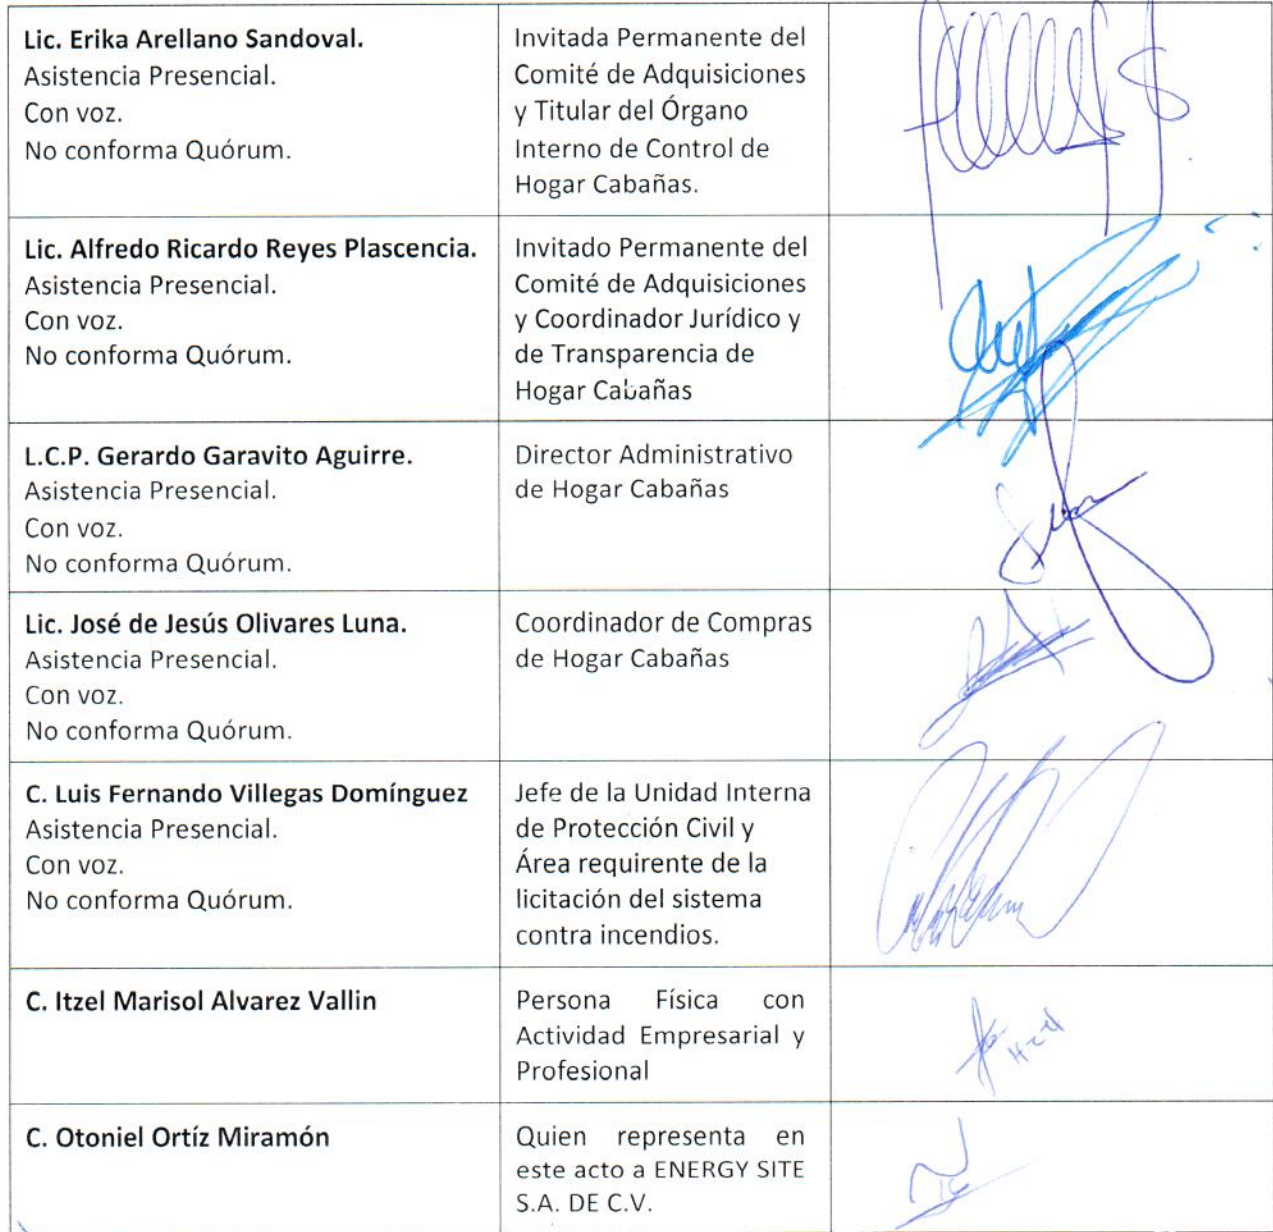 Lic. Erika Arellano Sandoval.
Asistencia Presencial.
Con voz.
No conforma Quórum.
Invitada Permanente del
Comité de Adquisiciones
y Titular del Órgano
Interno de Control de
Hogar Cabañas.
Lic. Alfredo Ricardo Reyes Plascencia.
Asistencia Presencial.
Con voz.
No conforma Quórum.
Invitado Permanente del
Comité de Adquisiciones
y Coordinador Jurídico y
de Transparencia de
Hogar Cabañas
L.C.P. Gerardo Garavito Aguirre.
Asistencia Presencial.
Con voz.
No conforma Quórum.
Director Administrativo
de Hogar Cabañas
Lic. José de Jesús Olivares Luna.
Asistencia Presencial.
Con voz.
No conforma Quórum.
Coordinador de Compras
de Hogar Cabañas
C. Luis Fernando Villegas Domínguez
Asistencia Presencial.
Con voz.
No conforma Quórum.
Jefe de la Unidad Interna
de Protección Civil y
Área requirente de la
licitación del sistema
contra incendios.
C. Itzel Marisol Alvarez Vallin
Persona Física con
Actividad Empresarial y
Profesional
C. Otoniel Ortíz Miramón
Quien representa en
este acto a ENERGY SITE
S.A. DE C.V.